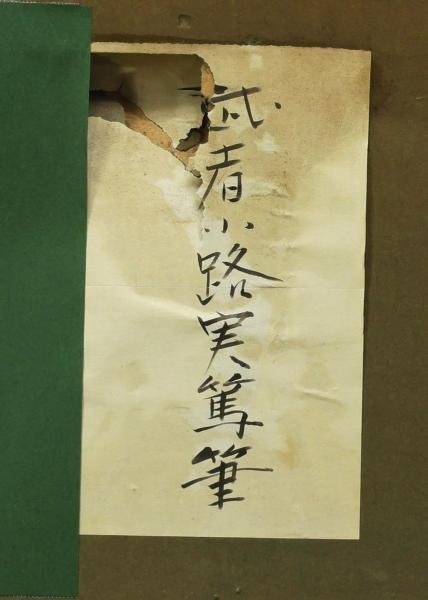 武者小路実篤筆